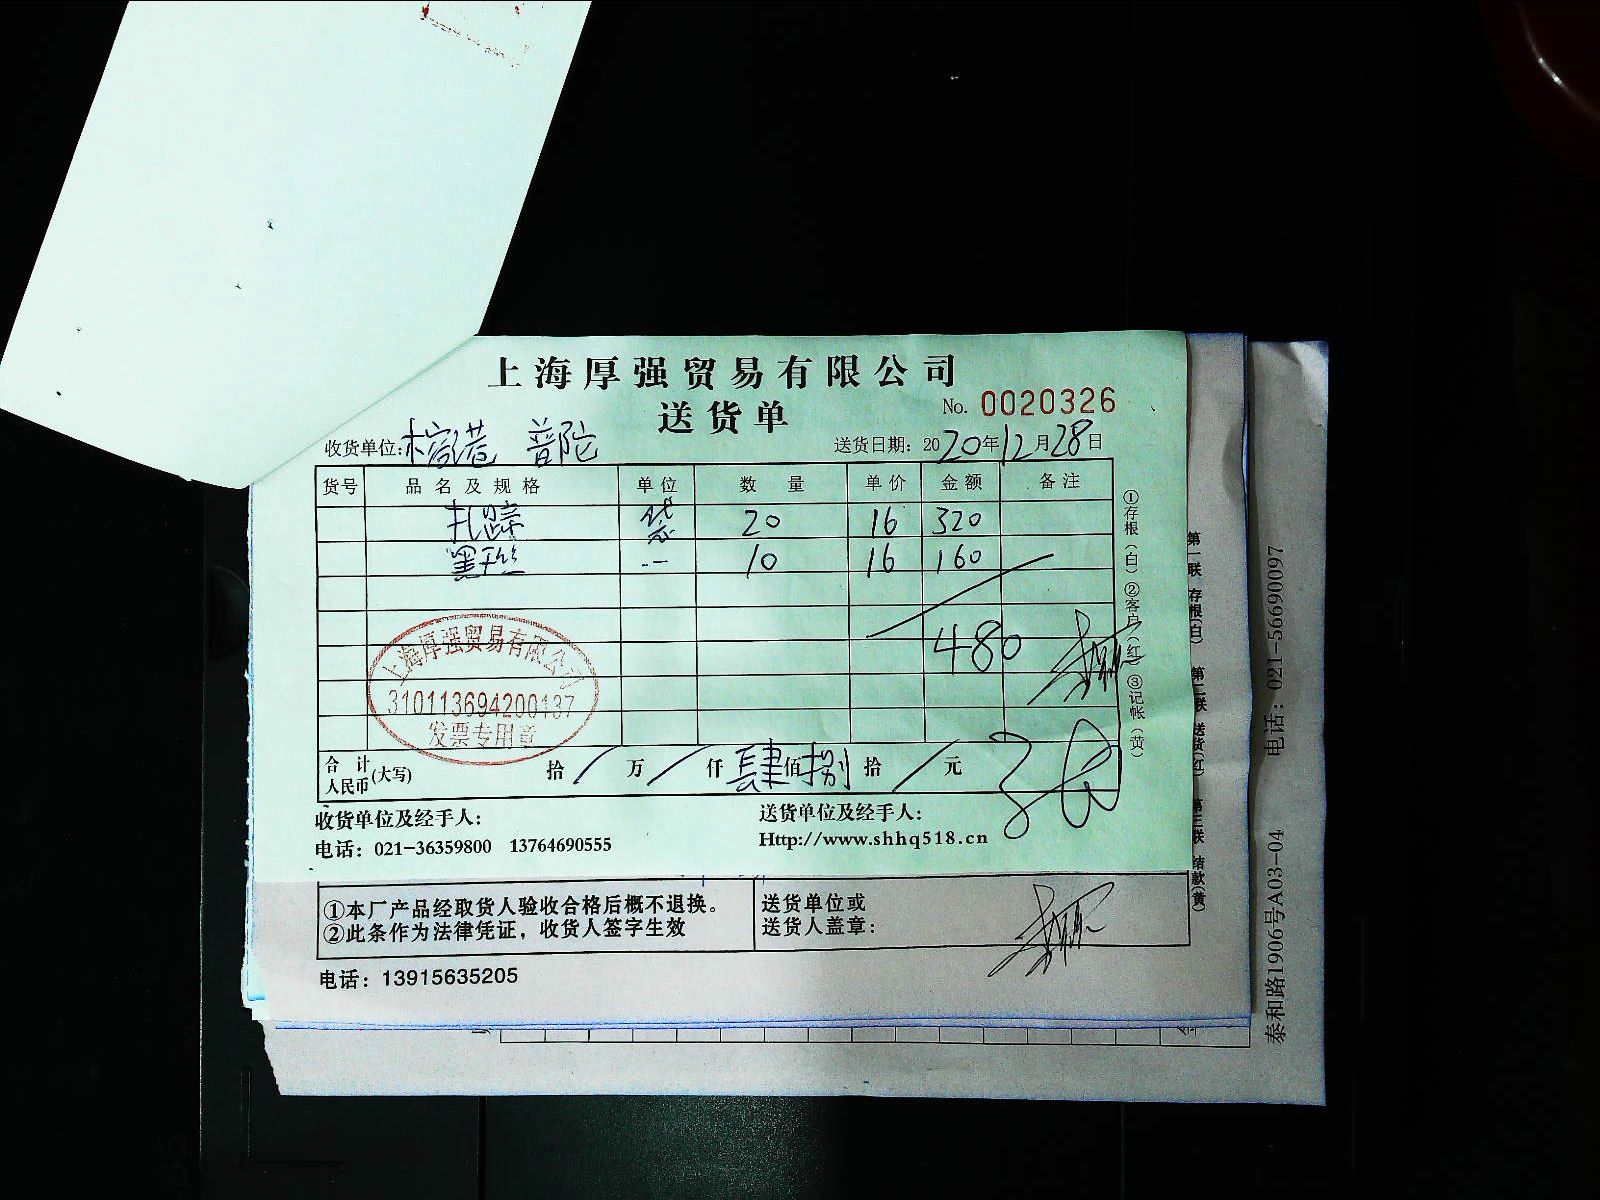 上海厚强贸易有限公司
送货单
No. 0020326
收货单位: 榕港 普陀
送货日期: 2020年12月28日
货号 品名及规格 单位 数量 单价 金额 备注
扎蹄 袋 20 16 320
黑千丝 -- 10 16 160
480
上海厚强贸易有限公司
310113694200137
发票专用章
合计人民币(大写) 拾 / 万 / 仟 肆 佰 捌 拾 / 元
收货单位及经手人:
送货单位及经手人:
电话: 021-36359800 13764690555
Http://www.shhq518.cn
①存根(白)②客户(红)③记帐(黄)
①本厂产品经取货人验收合格后概不退换。
②此条作为法律凭证，收货人签字生效
送货单位或
送货人盖章:
电话: 13915635205
第一联 存根(白) 第二联 送货(红) 第三联 结款(黄)
泰和路1906号A03-04 电话: 021-56690097